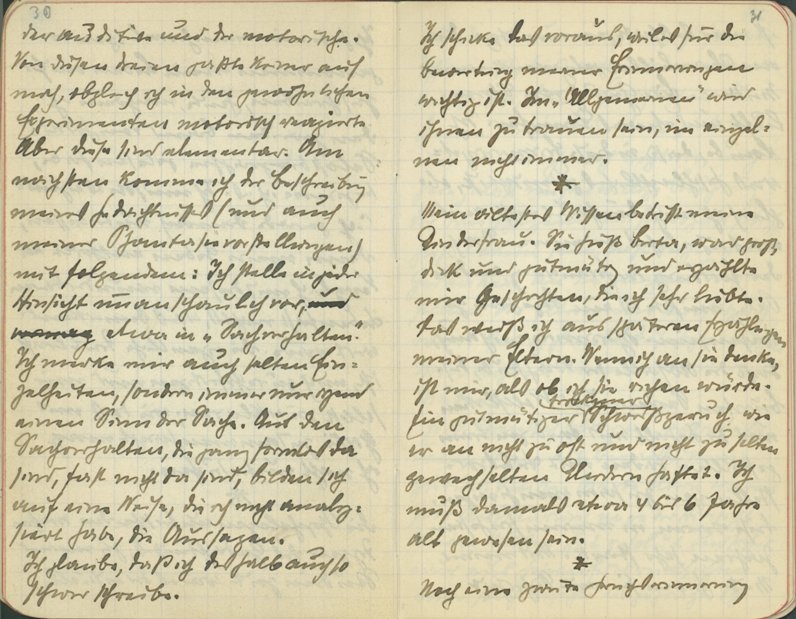 30
der auditive und der motorische.
Von diesen dreien paßte keiner auf
mich, obgleich ich in den gewöhnlichen
Experimenten motorisch reagierte.
Aber diese sind elementar. Am
nächsten komme ich der Beschreibung
meines Gedächtnisses (und auch
meiner Phantasievorstellungen)
mit folgendem: Ich stelle in jeder
Hinsicht unanschaulich vor, und
wenig etwa in „Sachverhalten".
Ich merke mir auch selten Ein-
zelheiten, sondern immer nur irgend
einen Sinn der Sache. Aus den
Sachverhalten, die ganz formlos da
sind, fast nicht da sind, bilden sich
auf eine Weise, die ich nicht analy-
siert habe, die Aussagen.
Ich glaube, daß ich deshalb auch so
schwer schreibe.
31
Ich schicke das voraus, weil es für die
Bewertung meiner Erinnerungen
wichtig ist. Im „Allgemeinen" wird
ihnen zu trauen sein, im einzel-
nen nicht immer.
*
Mein ältestes Wissen betrifft meine
Kinderfrau. Sie hieß Berta, war groß,
dick und gutmütig und erzählte
mir Geschichten, die ich sehr liebte.
Das weiß ich aus späteren Erzählungen
meiner Eltern. Wenn ich an sie denke,
ist mir, als ob ich sie riechen würde.
trockener
Ein gutmütiger Schweißgeruch, wie
er an nicht zu oft und nicht zu selten
gewechselten Kleidern haftet. Ich
muß damals etwa 4 bis 6 Jahre
alt gewesen sein.
*
Noch eine zweite Geruchserinnerung